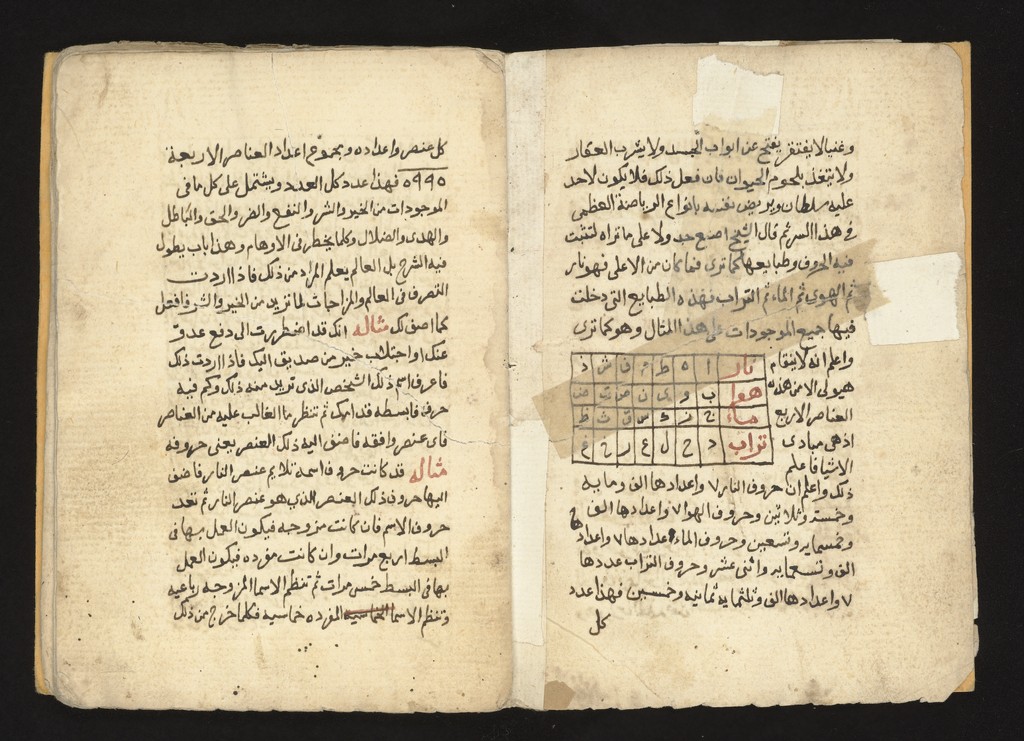 وغنيا لا يفتقر يفتح عن ابواب الجسد ولا يشرب العقار
ولا يتغذ بلحوم الحيوان فان فعل ذلك فلا يكون لاحد
عليه سلطان ويريض نفسه بانواع الرياضة العظمى
فى هذا السر ثم قال الشيخ اصنع جدولا على ما تراه لتثبت
فيه الحروف وطبايعها كما ترى فما كان من الاعلى فهو نار
ثم الهوى ثم الماء ثم التراب فهذه الطبايع التى دخلت
فيها جميع الموجودات على هذا المثال وهو كما ترى
واعلم انه لا ينقام
نار ا ه ط م ف ش ذ
هيولى الا من هذه
هوا ب و ى ن ص ت ض
العناصر الاربع
ماء ج ز ك س ق ث ظ
اذ هى مبادى
تراب د ح ل ع ر خ غ
الاشيا فاعلم
ذلك واعلم ان حروف النار ٧ واعدادها الف ومايه
وخمسة وثلاثين وحروف الهوا ٧ واعدادها الف
وخمسمايه وتسعين وحروف الماء عدادها ٧ واعدادها
الف وتسعمايه واثنى عشر وحروف التراب عددها
٧ واعدادها الف وثلثمايه ثمانيه وخمسين فهذا عدد
كل
كل عنصر واعداده ومجموع اعداد العناصر الاربعة
٥٩٩٥ فهذا عدد كل العدد ويشتمل على كل ما فى
الموجودات من الخير والشر والنفع والضر والحق والباطل
والهدى والضلال وكلما يخطر فى الاوهام وهذا باب يطول
فيه الشرح بل العالم يعلم المراد من ذلك فاذا اردت
التصرف فى العالم والمزاجات لما تريد من الخير والشر فافعل
كما اصف لك مثاله انك قد اضطررت الى دفع عدو
عنك او اجتلاب خير من صديق اليك فاذا اردت ذلك
فاعرف اسم ذلك الشخص الذى تريد منه ذلك وكم فيه
حرف فابسطه قدامك ثم تنظر ما الغالب عليه من العناصر
فاى عنصر وافقه فاضف اليه ذلك العنصر يعنى حروفه
مثاله قد كانت حروف اسمه تلايم عنصر النار فاضف
اليها حروف ذلك العنصر الذى هو عنصر النار ثم تعد
حروف الاسم فان كانت مزوجه فيكون العمل بها فى
البسط اربع مرات وان كانت مفرده فيكون العمل
بها فى البسط خمس مرات ثم تنظم الاسما المزوجه رباعيه
وتنظم الاسما الخماسيه المفرده خماسيه فكلما خرج من ذلك